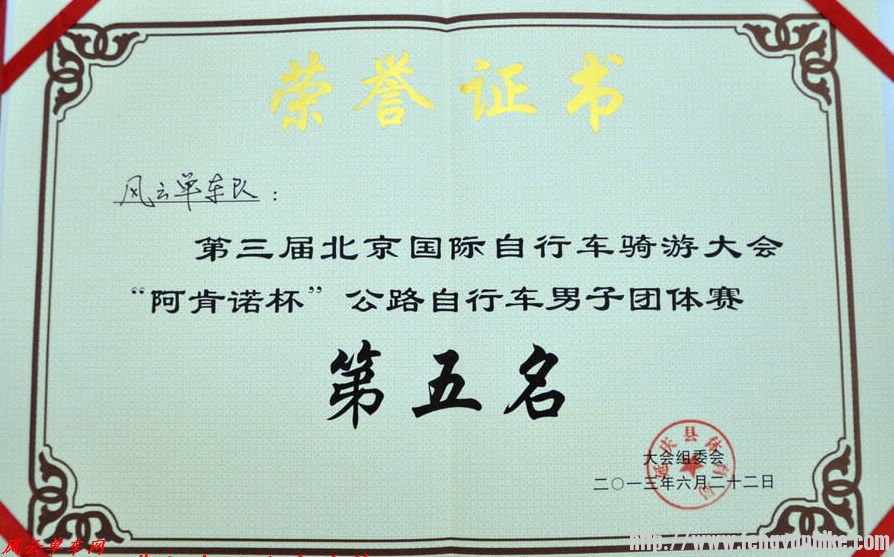 荣誉证书
风云单车队：
第三届北京国际自行车骑游大会
“阿肯诺杯”公路自行车男子团体赛
第五名
延庆县体育局
大会组委会
二〇一三年六月二十二日
风云单车网